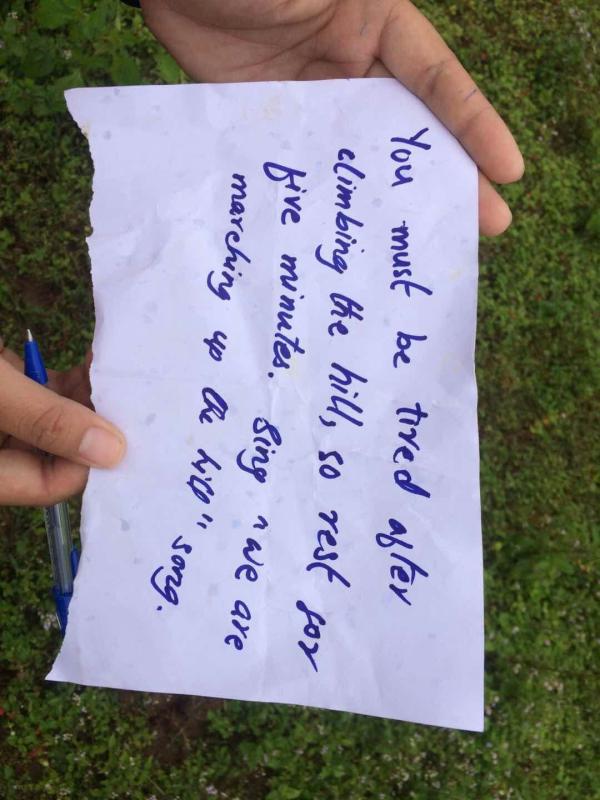 You must be tired after
climbing the hill, so rest for
five minutes. Sing "we are
marching up the hill" song.